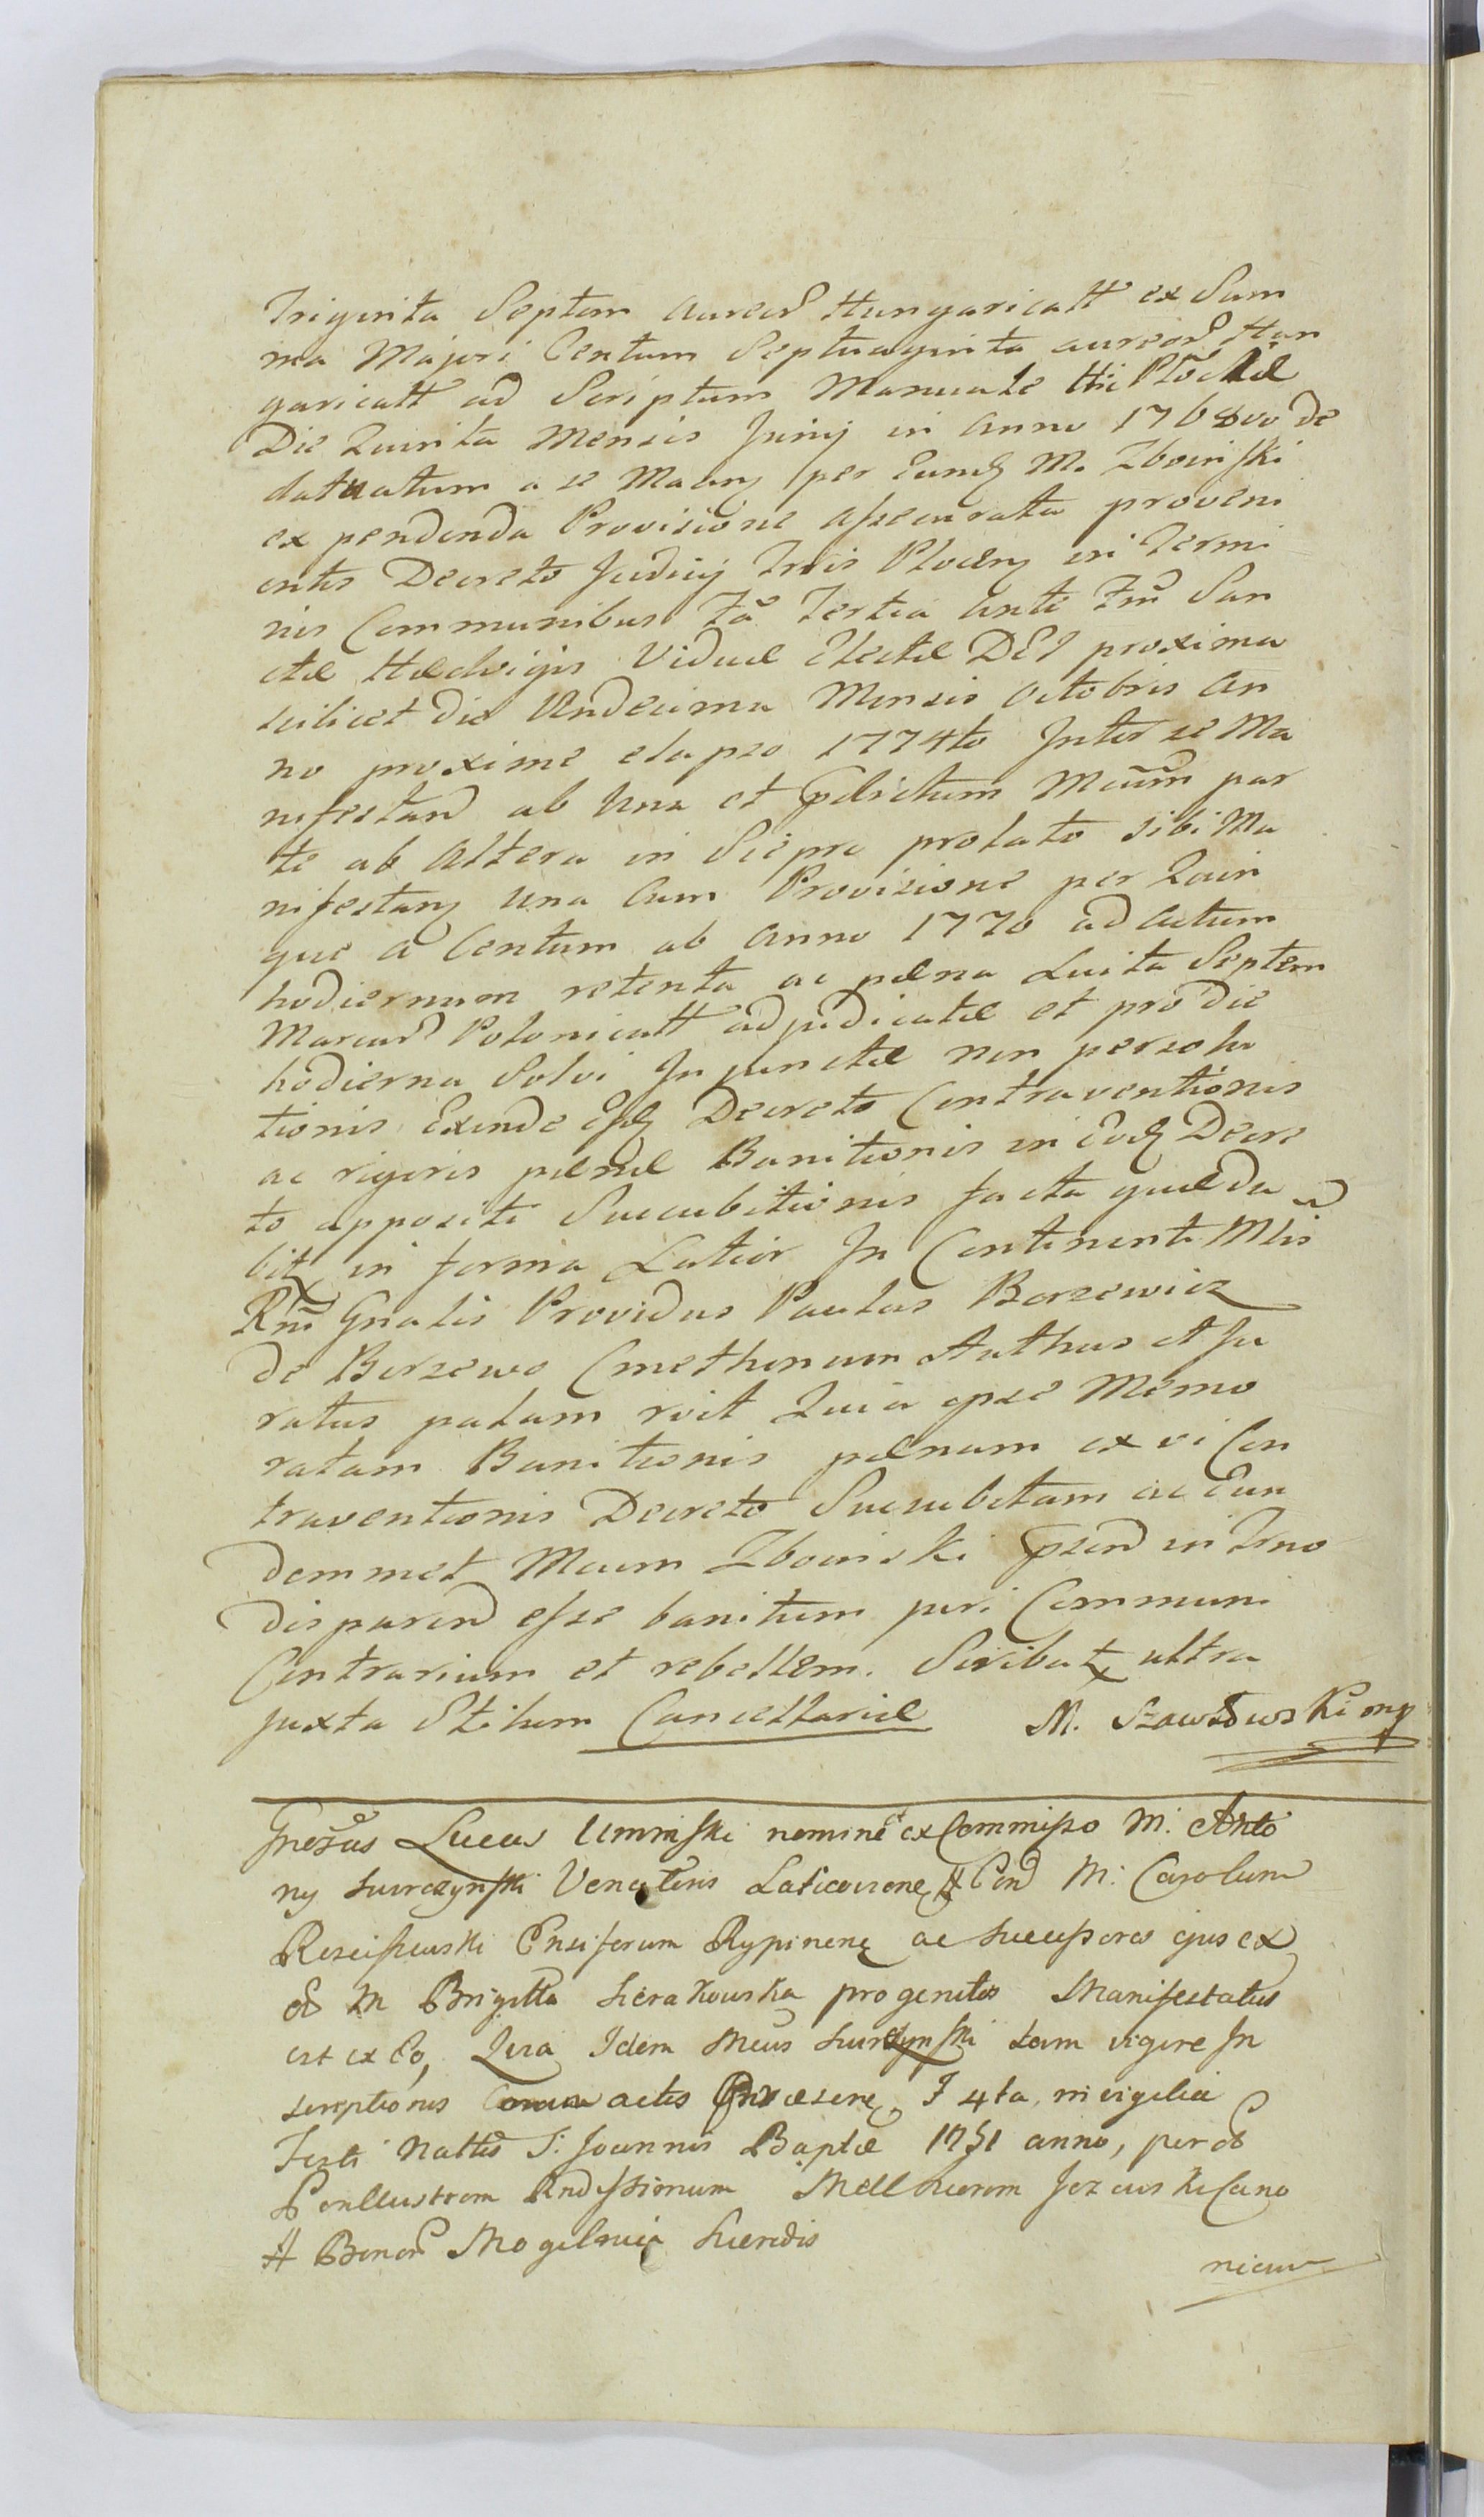 Triginta Septem aureor Hungaricall ex Sum
ma Majori Centum Septuaginta aureor Hun
garicall ad Scriptum Manuale Hic Plociæ
Die Quinta Mensis Junij in Anno 1768vo de
datuatum a se Macnj per Eundj M. Zboinski
ex pendenda Provisione assecurata proveni
entis Decreto Judicij Tris Plocenj in Termi
nis Communibus Fa Tertia ante Fm San
ctæ Hædvigis Viduæ Electæ DEI proxima
scilicet die Undecima Mensis Octobris An
no proxime elapso 1774to Inter se Ma
nifestand ab una et pdictum Mcum par
te ab Altera in Sierpc prolato sibi Ma
nifestanj una Cum Provisione per Quin
que a Centum ab anno 1770 ad actum
hodiernum retenta ac pæna Luita Septem
Marcar Polonicall adjudicatæ et pro die
hodierna Solvi Injunctæ non persolu
tionis Exinde Decreto Contraventionis
ac rigoris pænæ Banitionis in Eodj Decre
to appositi Succubitionis facta quæ da
bit in forma Latior In Continenti Mlis
Rni Gnalis Providus Paulus Borzewicz
de Borzewo Cmethonum Authus et Ju
ratus palam rcit Quia ipse Memo
ratam Banitionis pænam ex vi Con
traventionis Decreto Succubitam ac Eun
demmet Mcum Zboinski psend in Trno
disparend esse banitum juri Communi
Contrarium et rebellem. Scribat ultra
juxta Stilum Cancellariæ M. Szawłowski mp
Gnerosus Lucas Uminski nomine et ex Commisso M. Anto
nij Suirczynski Venatoris Laticoviene # Cond M: Carolum
Rosciszewski Ensiferum Rypinenę ac Successores ejus ex
od M Brigitta Sierakowska progenitos Manifestatus
est ex Eo, Quia Idem Mcus Suirczynski tam vigore In
scriptionis actis F 4ta, in vigilia
Festi Nattis S: Joannis Baptæ 1751 anno, per
Perillustrem Rndissimum Melchiorem Jezewski Cano
# Bonor Mogilnica Hæredis
nicum